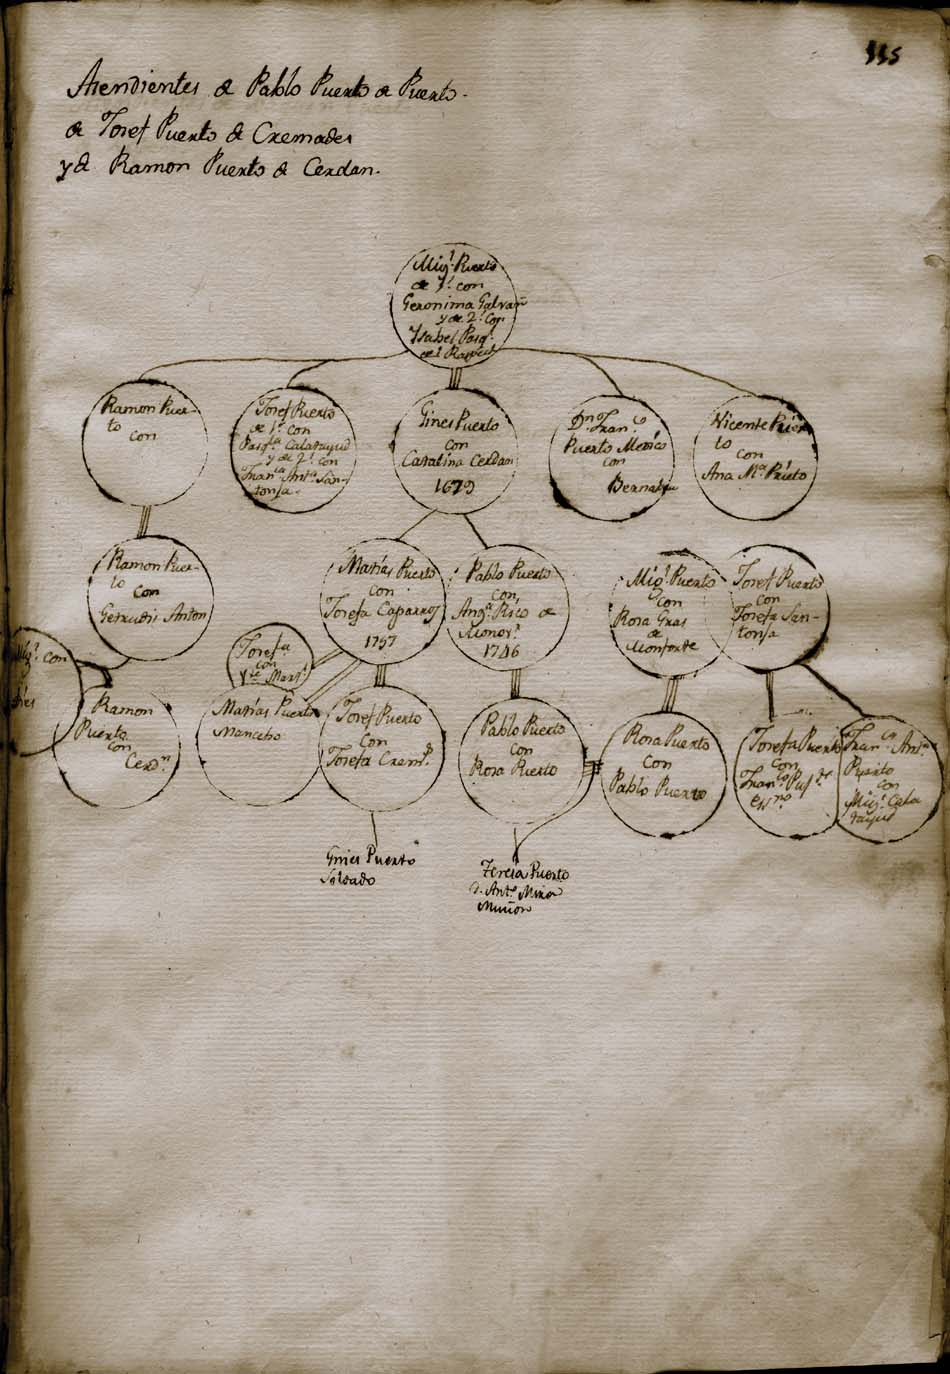 115
Asendientes de Pablo Puerto de Puerto.
de Josef Puerto de Cremades
y de Ramon Puerto de Cerdan.
Migl. Puerto
de 1ª. con
Geronima Galvañ
y de 2ª. con
Ysabel Pasql.
del Raspech
Ramon Puer-
to
con
Josef Puerto
de 1ª. con
Pasqla. Calatayud
y de 2ª. con
Franca. Anta. San-
tonja.
Gines Puerto
con
Catalina Cerdan
1679
Dn. Franco.
Puerto Medico
con
Bernabeu
Vicente Puer
to
con
Ana Mª. Prieto
Ramon Puer-
to
con
Getrudis Anton
Matias Puerto
con
Josefa Caparros
1757
Pablo Puerto
con
Anga. Rico de
Monovr.
1746
Migl. Puerto
con
Rosa Gras
de
Monforte
Josef Puerto
con
Josefa San-
tonja
Migl. con
Josefa
con
Yte. Martz.
Ramon
Puerto
con
Cerdn.
Matias Puerto
Mancebo
Josef Puerto
con
Josefa Cremds.
Pablo Puerto
con
Rosa Puerto
Rosa Puerto
con
Pablo Puerto
Josefa Puerto
con
Franco.
essno.
Franca. Anta.
Puerto
con
Migl. Cala
tayud
Gines Puerto
Soldado
Teresa Puerto
Anto. Mira